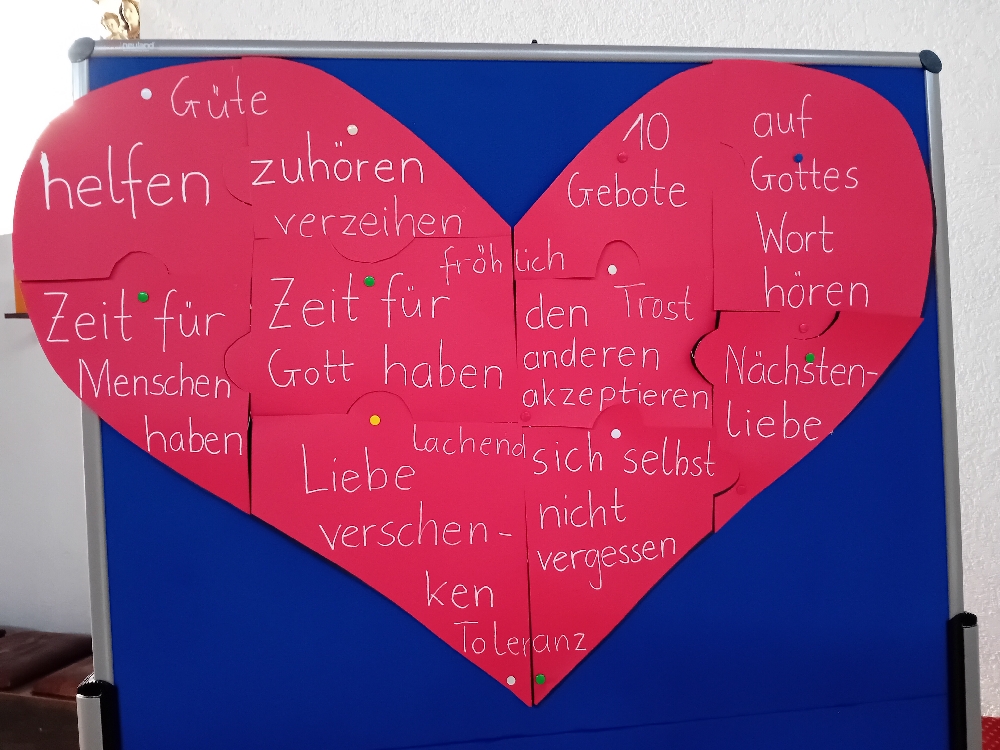 neuland
Güte
helfen
zuhören
verzeihen
10
Gebote
auf
Gottes
Wort
hören
fröhlich
Zeit für
Menschen
haben
Zeit für
Gott haben
Trost
den
anderen
akzeptieren
Nächsten-
liebe
lachend
Liebe
verschen-
ken
sich selbst
nicht
vergessen
Toleranz